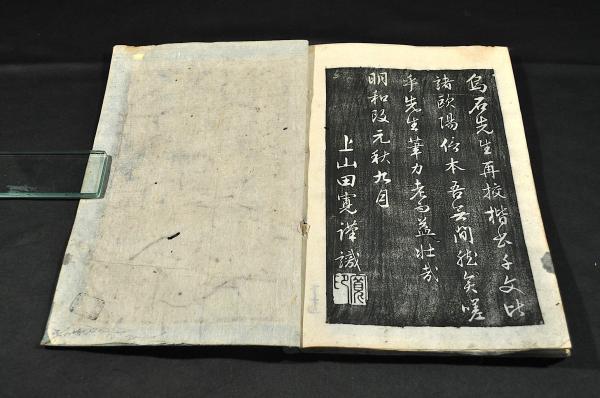 烏石先生再挍楷書千文比
諸歐陽信本吾無間然矣嗟
乎先生筆力老而益壯哉
明和改元秋九月
上山田寬謹識
寬印